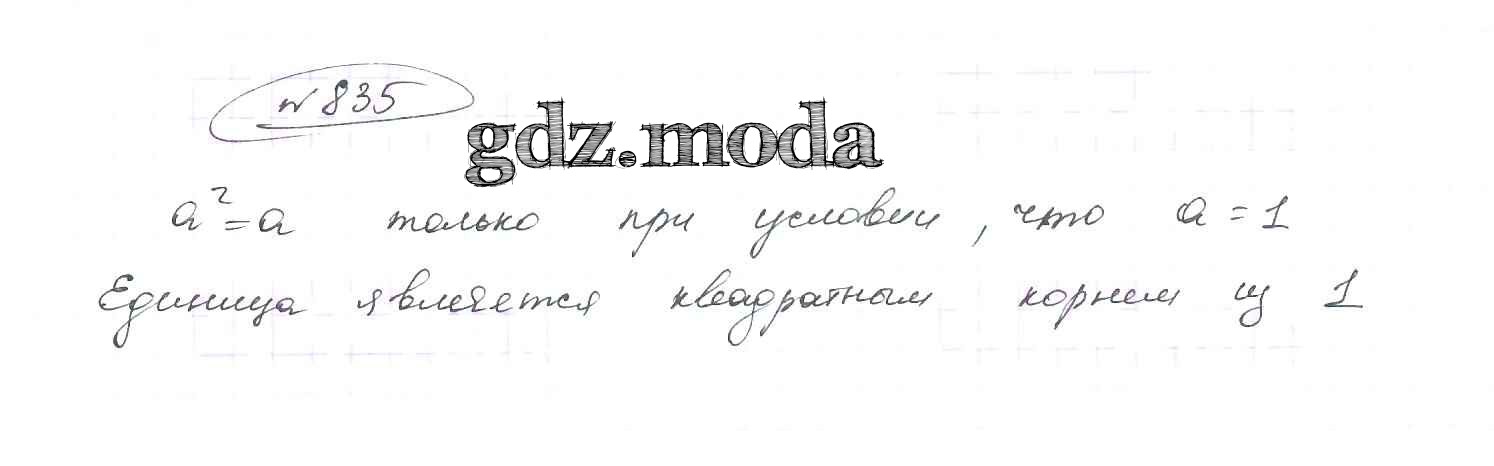 № 835
gdz.moda
a² = a только при условии, что a = 1
Единица является квадратным корнем из 1